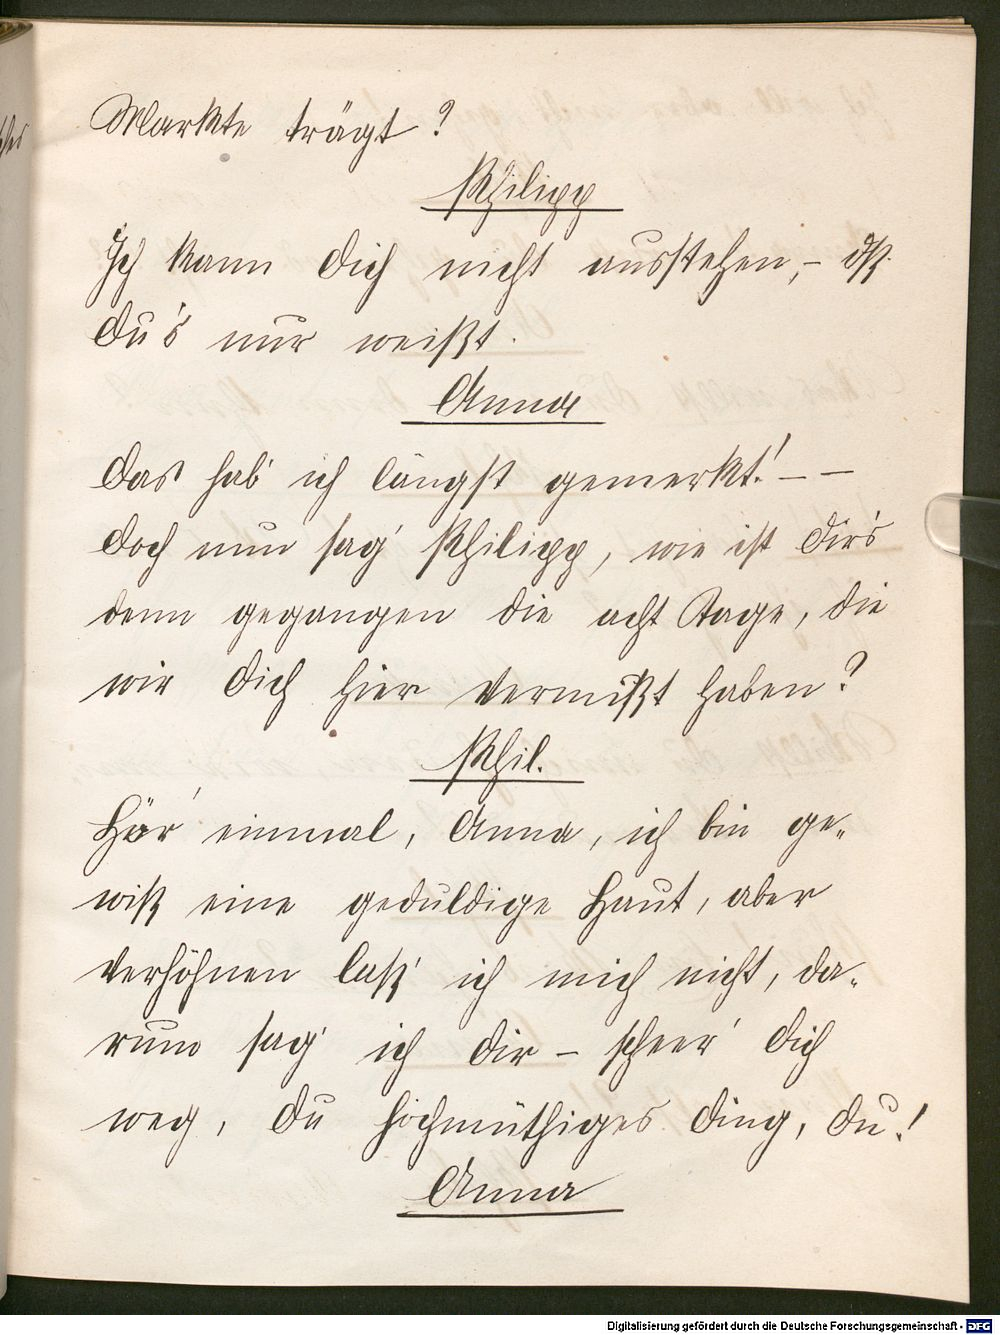 Markte trägt?
Philipp
Ich kann dich nicht ausstehen, – dß
du's nur weißt.
Anna
Das hab' ich längst gemerkt! – –
Doch nun sag' Philipp, wie ist dir's
denn gegangen die acht Tage, die
wir dich hier vermißt haben?
Phil.
Hör' einmal, Anna, ich bin ge-
wiß eine geduldige Haut, aber
verhöhnen laß' ich mich nicht, da-
rum sag' ich dir – scheer' dich
weg, du hochmüthiges Ding, du!
Anna
Digitalisierung gefördert durch die Deutsche Forschungsgemeinschaft - DFG